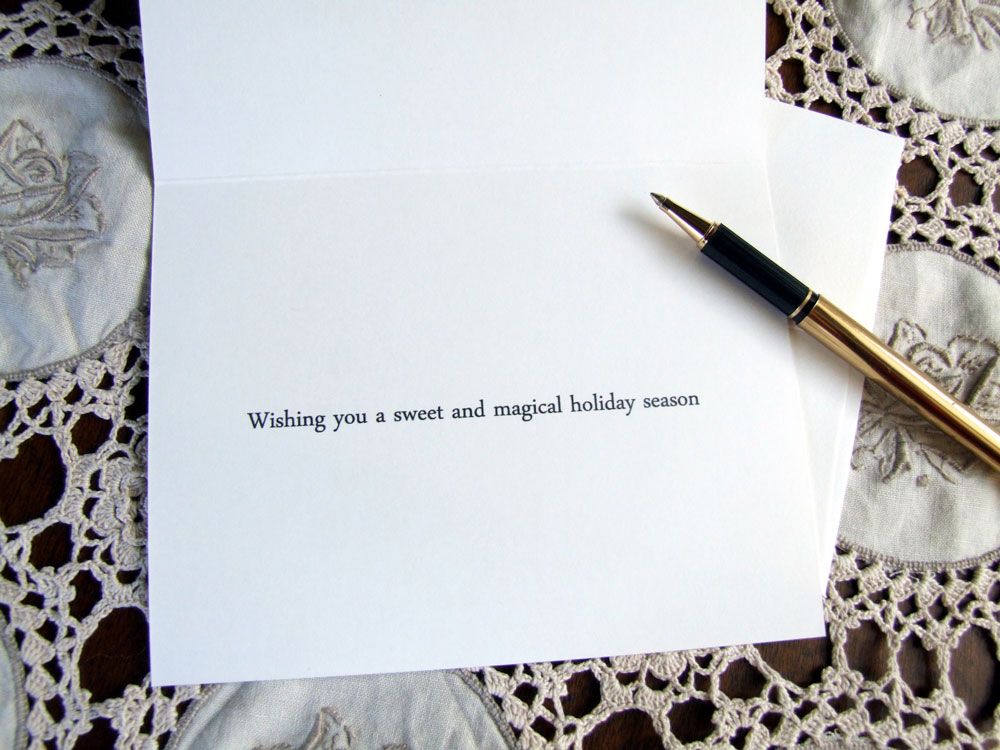 Wishing you a sweet and magical holiday season